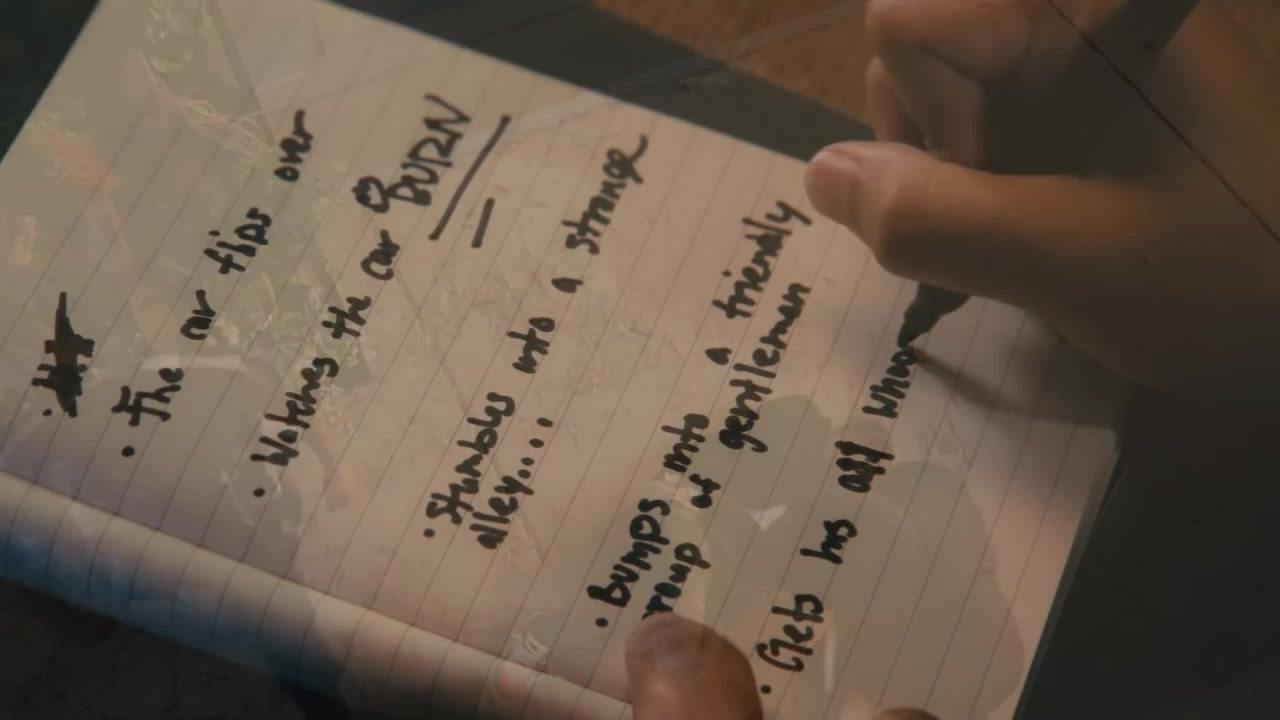 • The car flips over
• Watches the car BURN
• Stumbles into a strange
alley....
• Bumps into a friendly
group of gentlemen
• Gets his all whoo